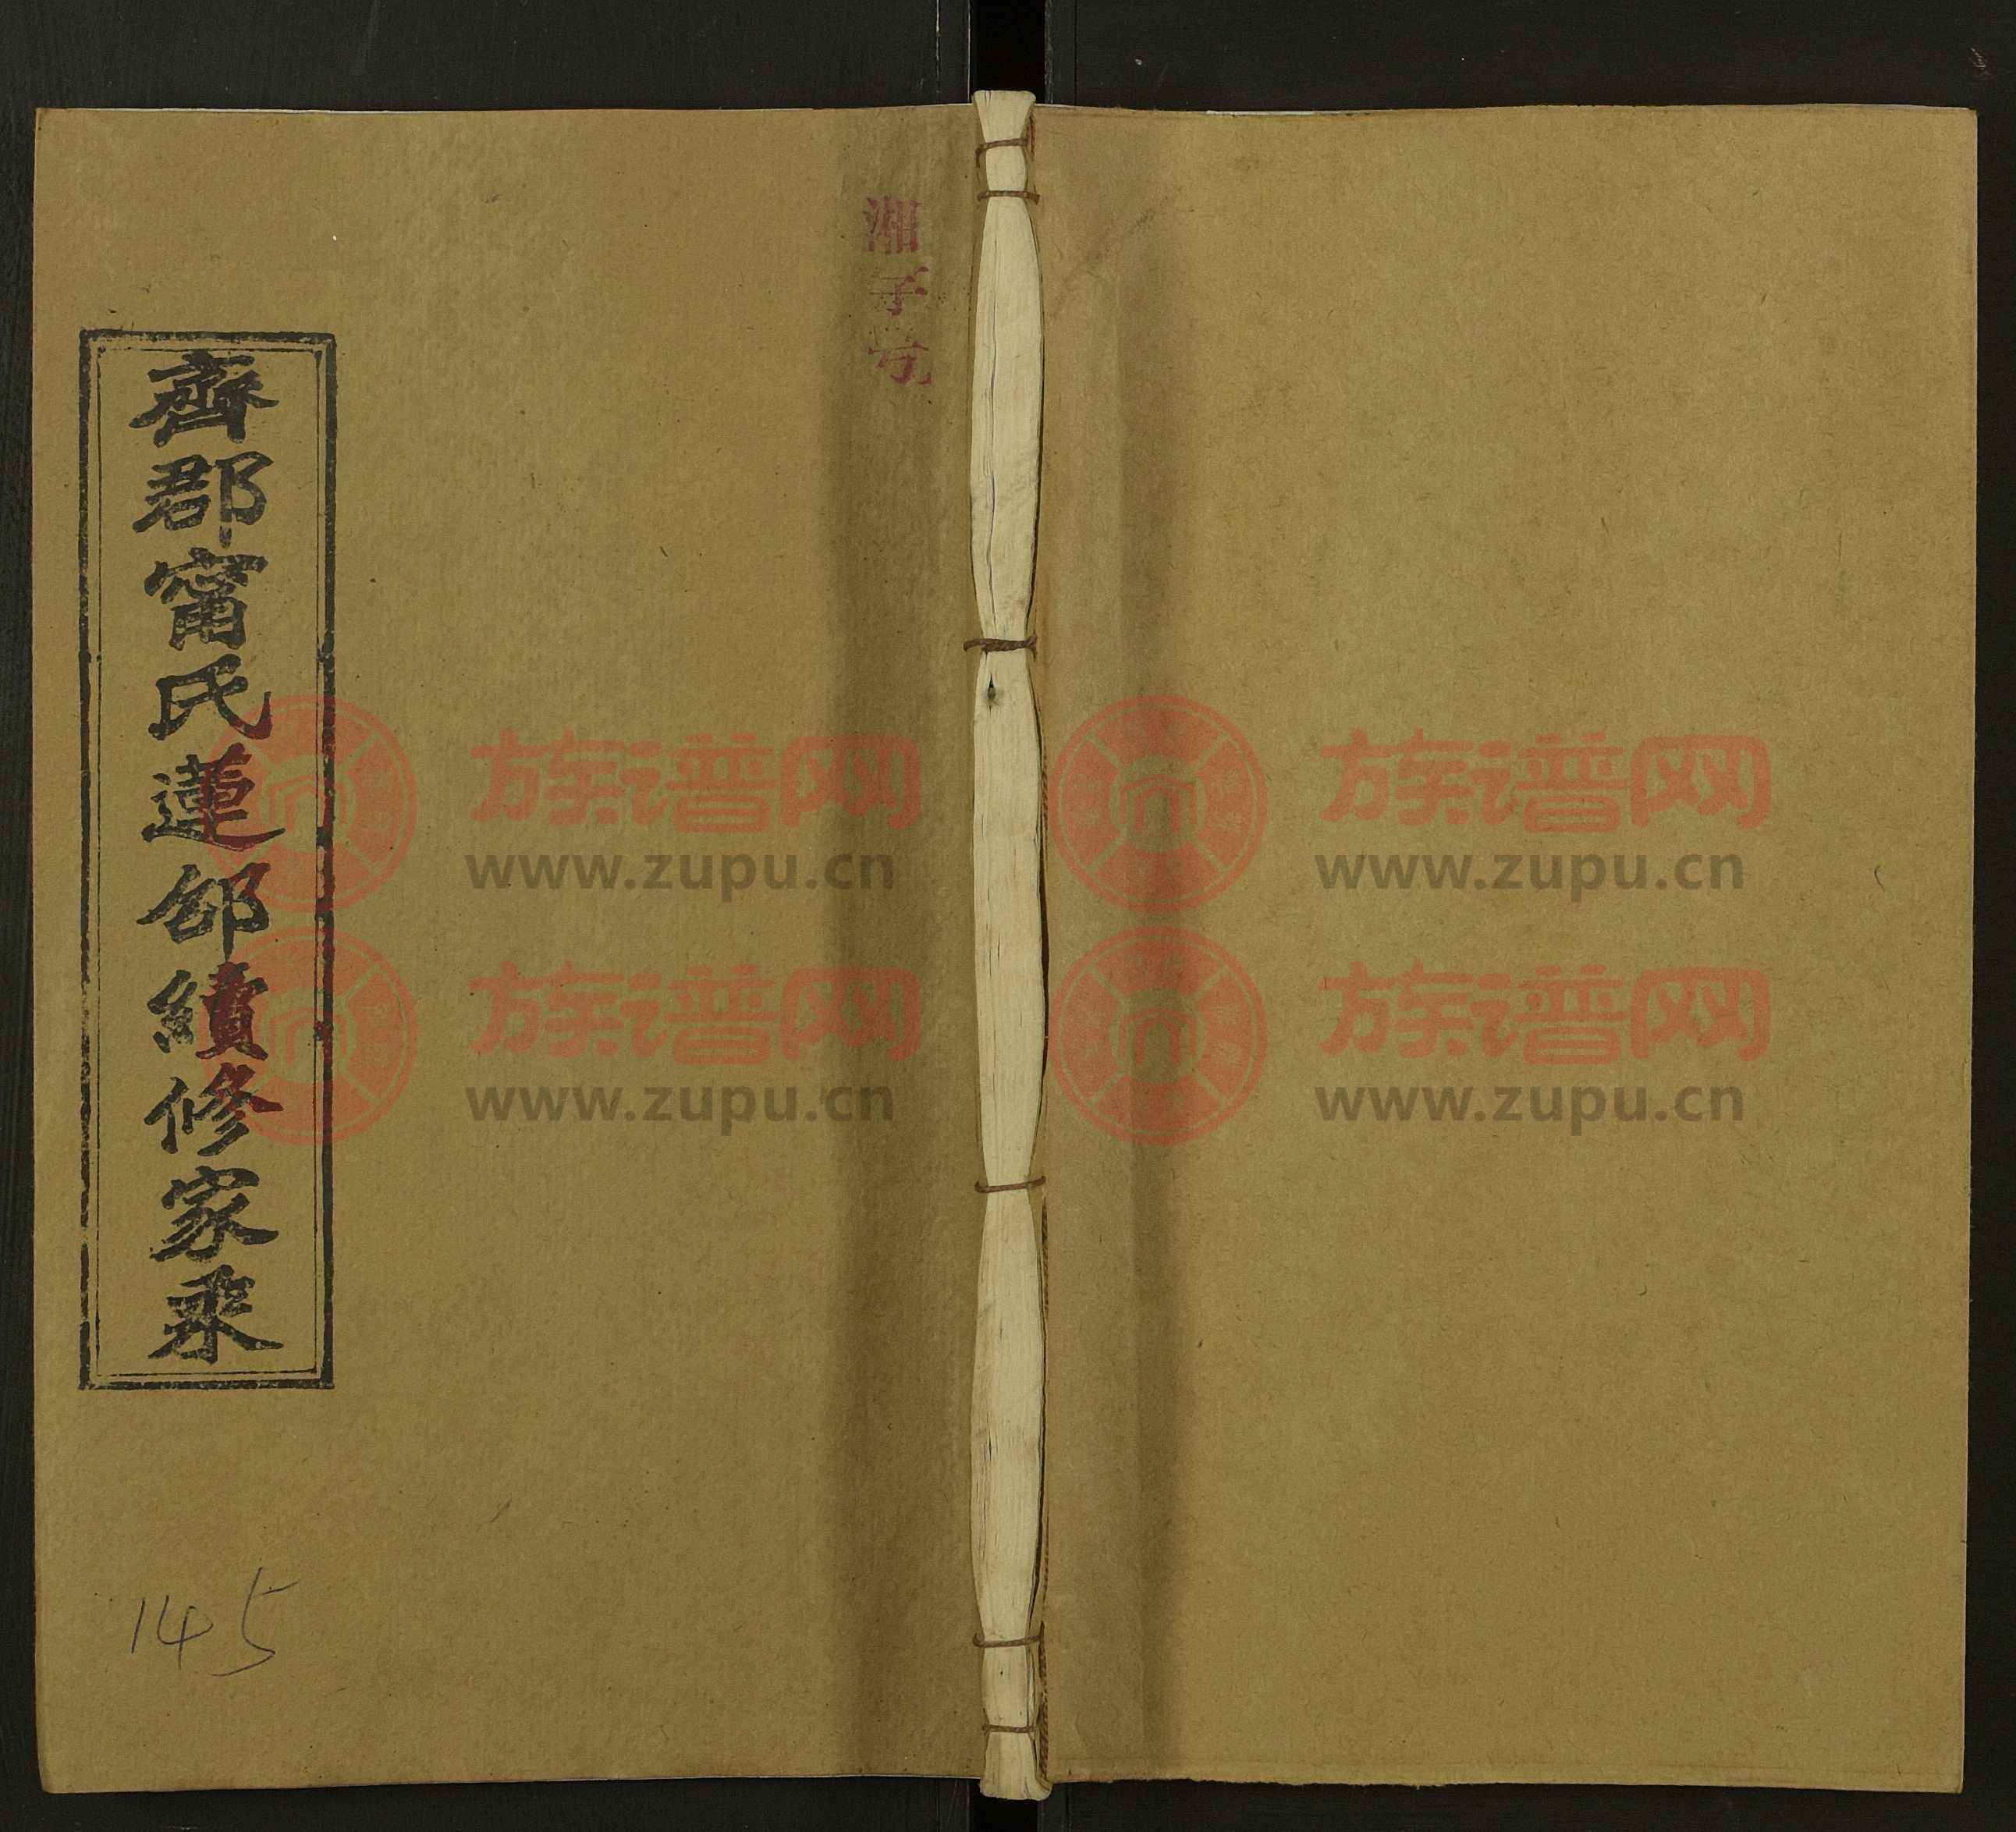 湘子号
齊郡甯氏蓮邰續修家乘
145
族谱网
www.zupu.cn
族谱网
www.zupu.cn
族谱网
www.zupu.cn
族谱网
www.zupu.cn